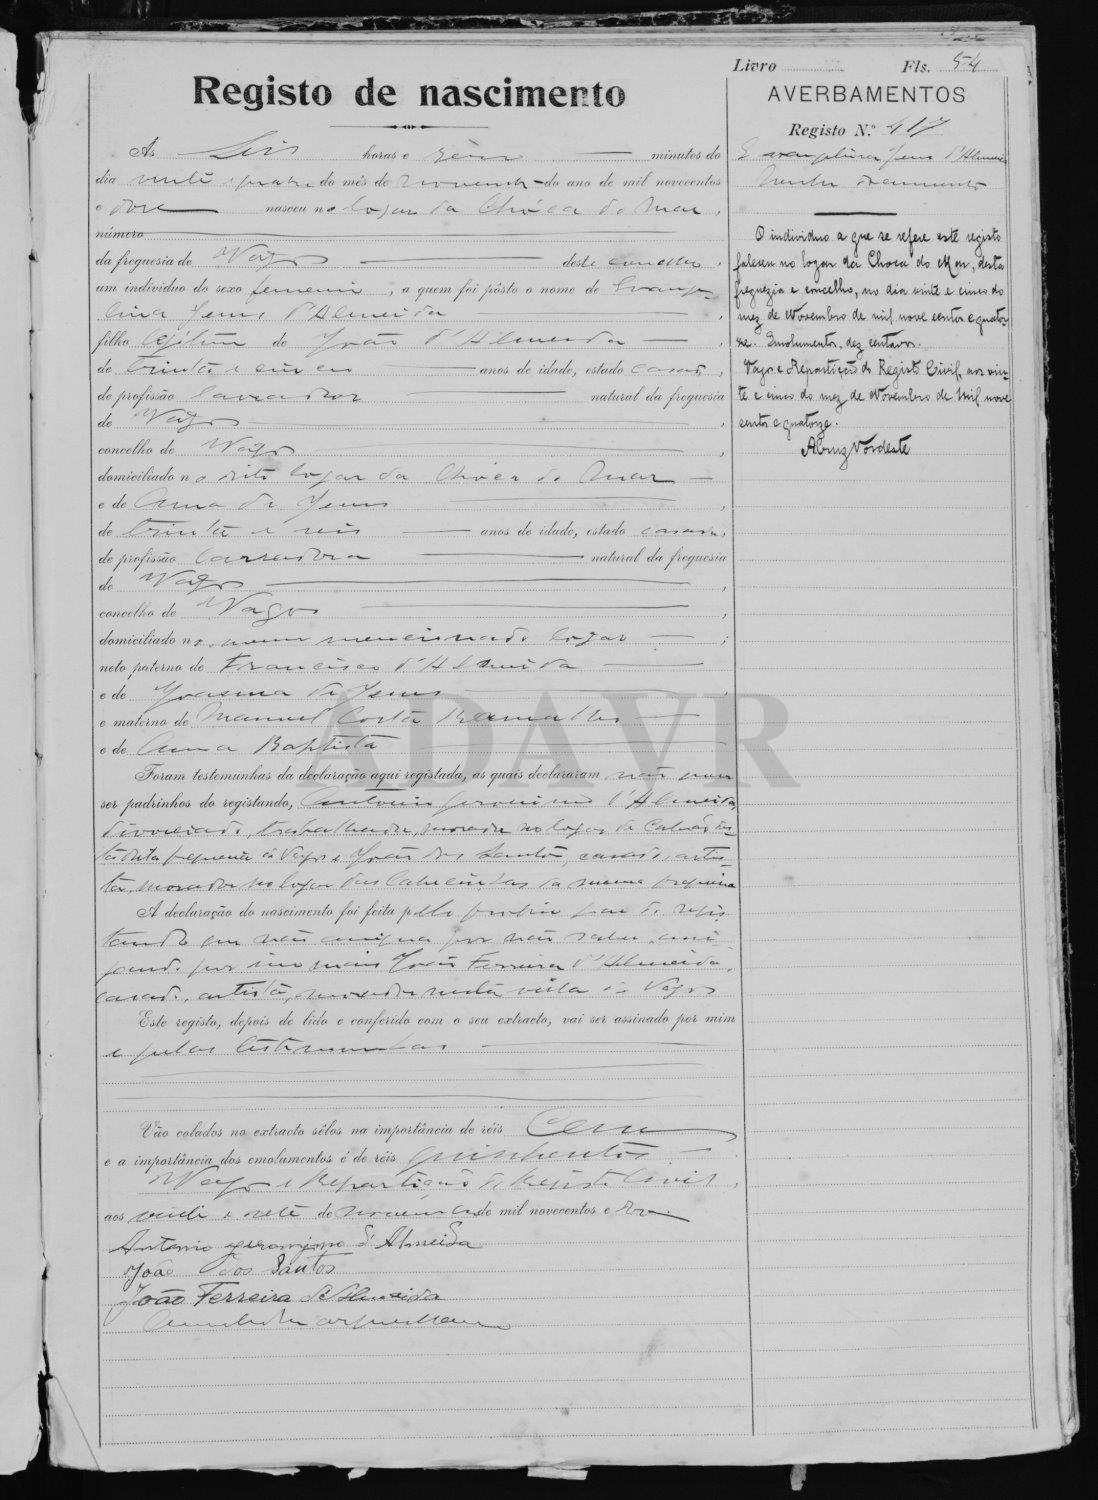 Livro Fls. 54
Registo de nascimento
AVERBAMENTOS
Registo N.º 417
Jesus d'Almeida
Nenhum documento
O individuo a que se refere este registo
faleceu no logar da Choca do Mar, desta
freguezia e concelho, no dia vinte e cinco do
mez de Novembro de mil nove centos e quator-
ze. Emolumentos, dez centavos.
Vagos e Repartição do Registo Civil, aos vin-
te e cinco do mez de Novembro de mil nove
centos e quatorze.
As seis horas e minutos do
dia vinte e quatro do mês de Novembro do ano de mil novecentos
e doze nasceu no logar da Chóca do Mar,
número
da freguesia de Vagos deste concelho,
um indivíduo do sexo femenino, a quem foi pôsto o nome de Evange-
lina Jesus d'Almeida
filho legitimo de João d'Almeida
de trinta e cinco anos de idade, estado casado,
de profissão lavrador natural da freguesia
de Vagos
concelho de Vagos
domiciliado no dito logar da Chóca do Mar
e de Anna de Jesus
de trinta e seis anos de idade, estado casada,
de profissão lavradora natural da freguesia
de Vagos
concelho de Vagos
domiciliado no mesmo mencionado logar
neto paterno de Francisco d'Almeida
e de Joanna de Jesus
e materno de Manuel Costa Ramalho
e de Anna Baptista
Foram testemunhas da declaração aqui registada, as quais declararam não querer
ser padrinhos do registando, Antonio Jeronimo d'Almeida,
divorciado, trabalhador, morador no logar de
desta freguesia de Vagos e João dos Santos, casado, artis-
ta, morador no logar das da mesma freguesia
A declaração do nascimento foi feita pelo proprio pae do regis-
tando que não assigna por não saber, assi-
gnando por seu João Ferreira d'Almeida,
casado, artista, morador nesta vila de Vagos
Este registo, depois de lido e conferido com o seu extracto, vai ser assinado por mim
e pelas testemunhas
Vão colados no extracto sêlos na importância de réis Cem
e a importância dos emolumentos é de réis quinhentos
Vagos e Repartição do Registo Civil,
aos vinte e sete de novembro de mil novecentos e doze
Antonio Jeronimo d'Almeida
João dos Santos
João Ferreira d'Almeida
ADAVR